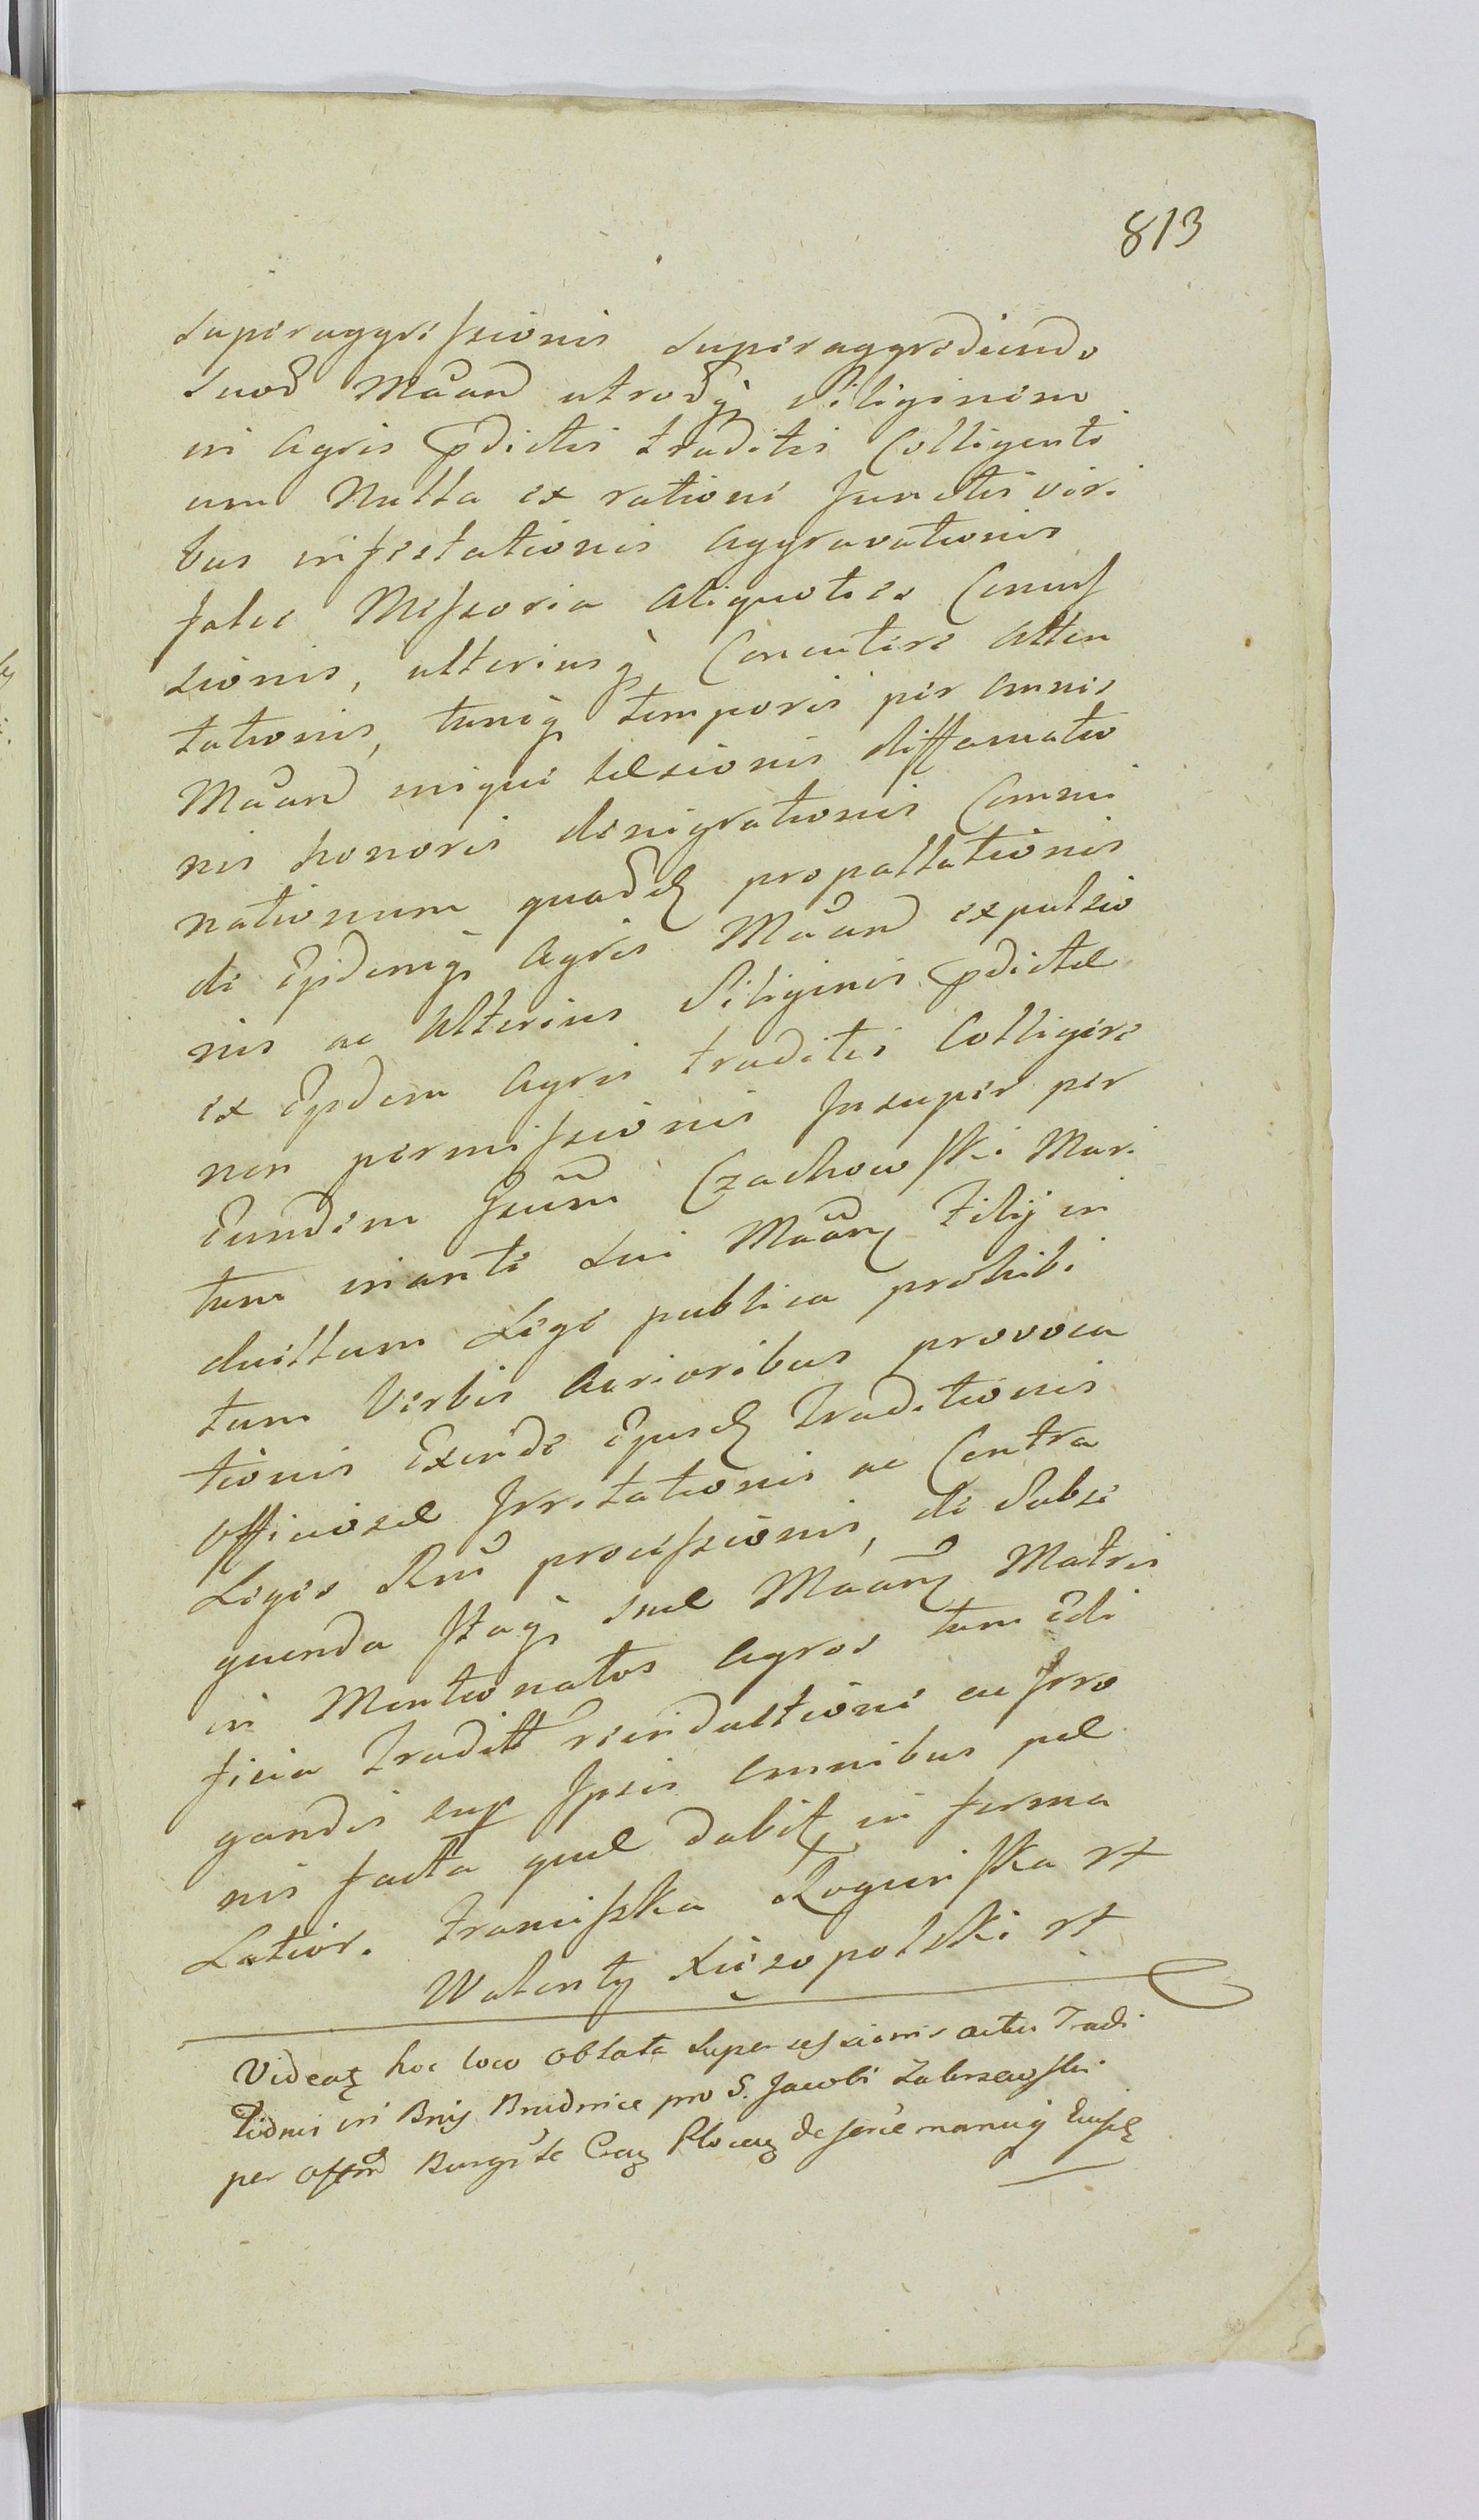 813
superaggressionis superaggrediendo
suod Maand utrodq siliginem
in agris pdictis traditis Colligenti
um Nulla ex ratione Junctis viri
bus infestationis aggravationis
falce Messoria aliquoties Concus
sionis, ulteriusq Concutere atten
tationis, tuncq temporis per omnis
Maand inique lesionis diffamatio
nis honoris denigrationis Commi
nationum quard propallationis
de Eisdemq agris Maand expulsio
nis ac ulterius Siliginis pdictæ
ex Eisdem agris traditis Colligere
non permissionis Insuper per
Eundem Czachowski Mari
tum inante sui Maan Filij in
duellum Lege publica prohibi
tum Verbis acrioribus provoca
tionis Exinde Ejusd Traditionis
officiosæ Irritationis ac Contra
Leges Rni processionis, de Subse
quenda suæ Maan Matris
in Mentionatos agros tum
ficia Tradit reinductione ac Irro
gandis sup Ipsis omnibus pæ
nis facta quæ dabit in forma
Latior. Franciszka Rogurska
Walenty Xięzopolski
Videat hoc loco oblata Supersessionis actus Tradi
in Bnis Brudnice pro S. Jacobi Zabrzewski
per offm Burgi de serie manuq